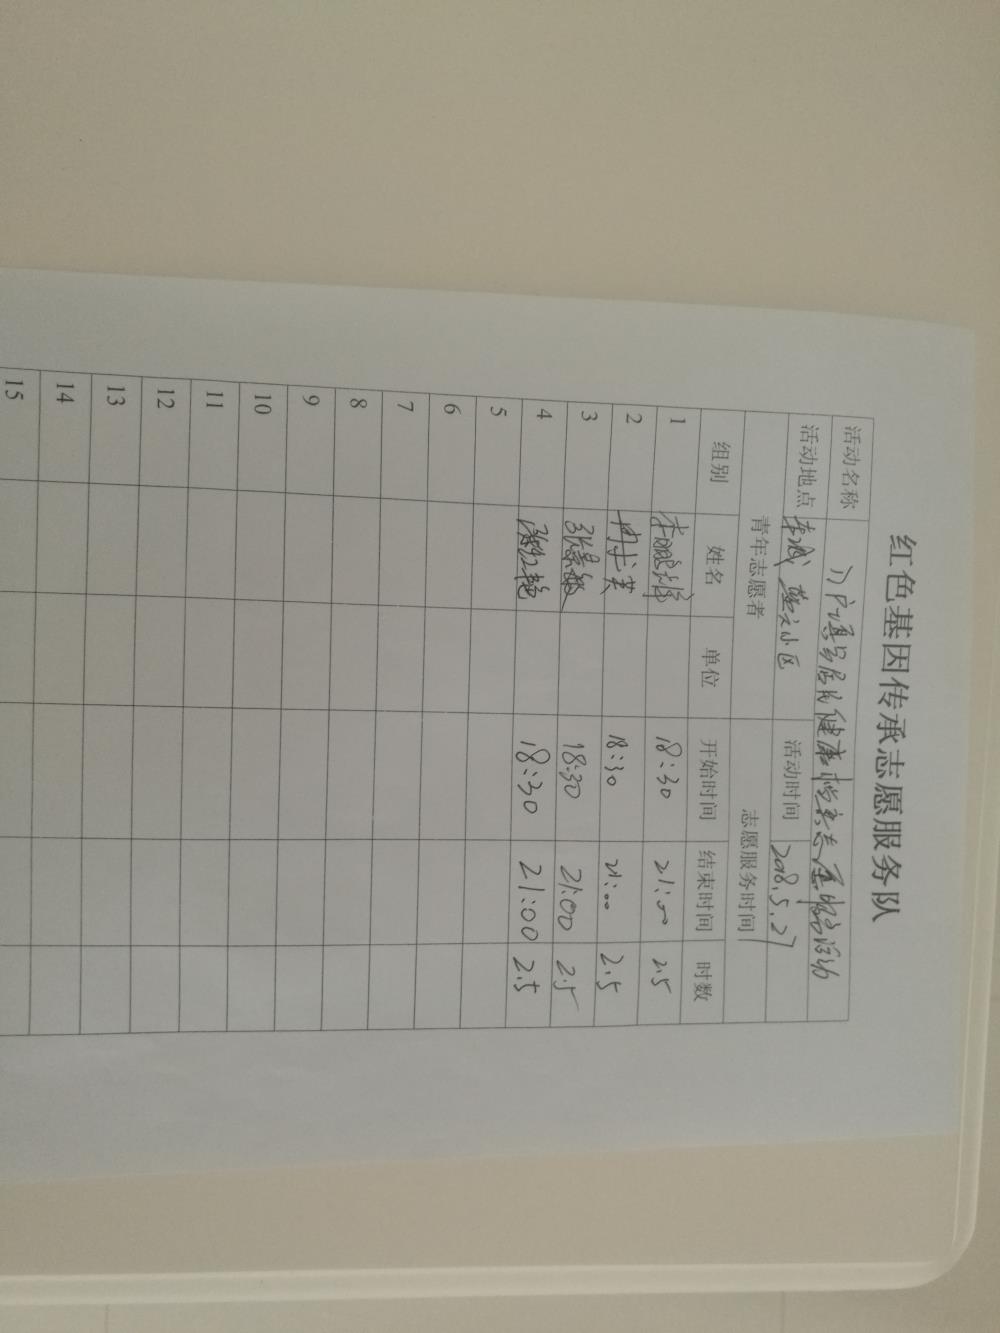 红色基因传承志愿服务队
活动名称 入户填写居民健康档案志愿服务活动
活动地点 东城 小区 活动时间 2018.5.27
青年志愿者 志愿服务时间
组别 姓名 单位 开始时间 结束时间 时数
1 李鹏 18:30 21:00 2.5
2 冉 英 18:30 21:00 2.5
3 张景 18:30 21:00 2.5
4 艳 18:30 21:00 2.5
5
6
7
8
9
10
11
12
13
14
15